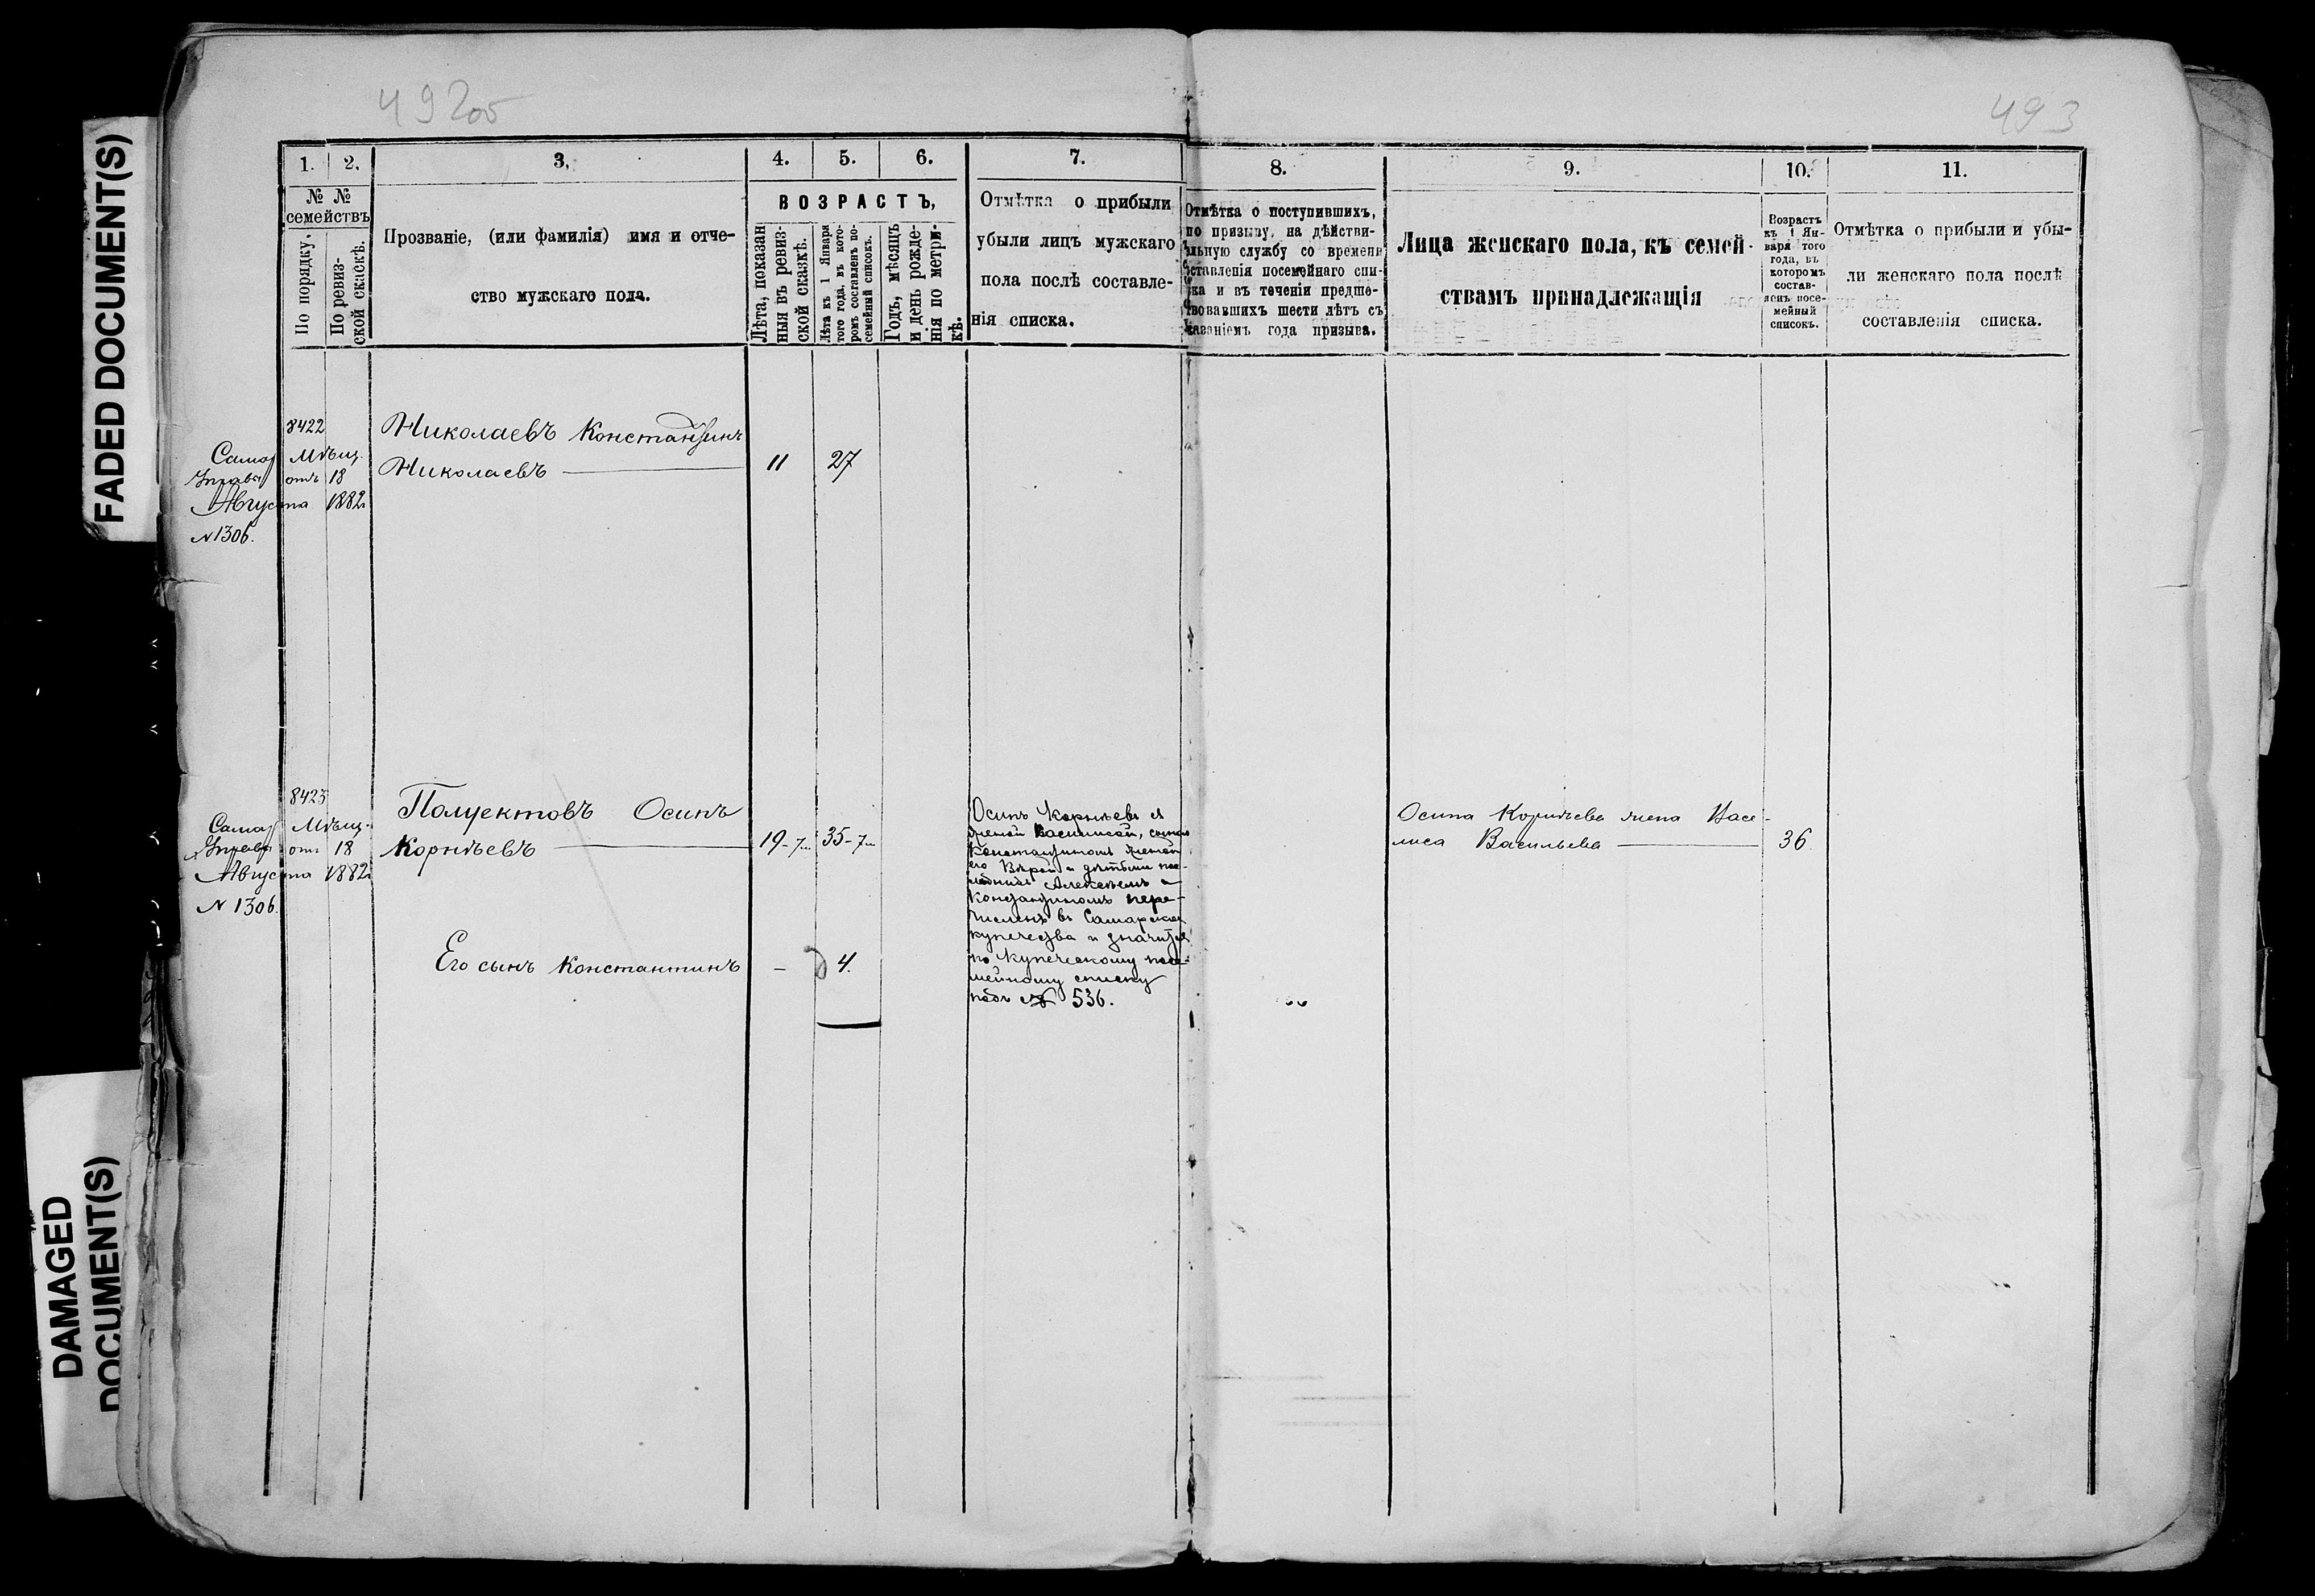 492об
493
FADED DOCUMENT(S)
DAMAGED
DOCUMENT(S)
1.
2.
3.
4.
5.
6.
7.
8.
9.
10.
11.
№ №
семействъ
По порядку.
По ревиз-
ской скаскѣ.
Прозваніе, (или фамилія) имя и отче-
ство мужскаго пола.
ВОЗРАСТЪ,
Лѣта, показан
ныя въ ревиз-
ской сказкѣ.
Лѣта къ 1 Января
того года, въ кото-
ромъ составленъ по-
семейный списокъ.
Годъ, мѣсяцъ
и день рожде-
нія по метри-
кѣ.
Отмѣтка о прибыли
убыли лицъ мужскаго
пола послѣ составле-
нія списка.
Отмѣтка о поступившихъ,
по призыву, на дѣйстви-
льную службу со времени
ставленія посемейнаго спи-
ка и въ теченіи предше-
твовавшихъ шести лѣтъ съ
казаніемъ года призыва.
Лица женскаго пола, къ семей-
ствамъ принадлежащія
Возрастъ
къ 1 Ян-
варя того
года, въ
которомъ
состав-
ленъ посе-
мейный
списокъ.
Отмѣтка о прибыли и убы-
ли женскаго пола послѣ
составленія списка.
8422
Самар Мѣщ.
Управы отъ 18
Августа 1882г
N 1306.
Николаевъ Константинъ
Николаевъ
11
27
8423
Самар Мѣщ.
Управы отъ 18
Августа 1882г
N 1306.
Полуектовъ Осипъ
Корнѣевъ
19-7
35-7
Его сынъ Константинъ
-
4.
Осипъ Корнѣевъ съ
женой Василисой, сыномъ
Константиномъ женой
его Вѣрой и дѣтьми пос-
лѣднихъ Алексѣемъ и
Константиномъ пере-
численъ въ Самарское
купечество и значится
по Купеческому посе-
мейному списку
подъ № 536.
Осипа Корнѣева жена Васи-
лиса Васильева
36